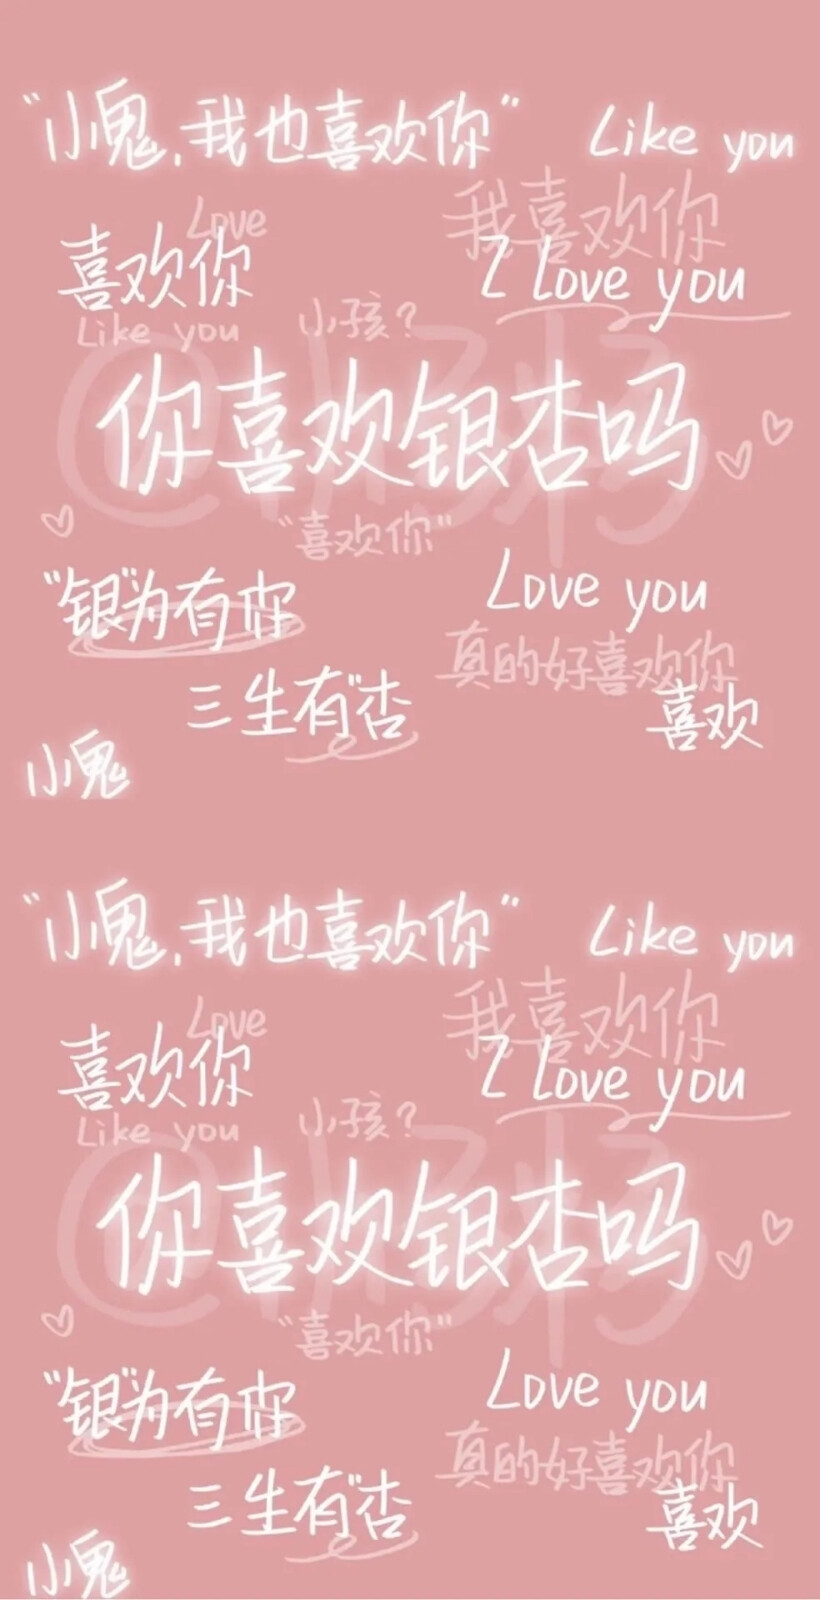 “小鬼，我也喜欢你”
Like you
Love
我喜欢你
喜欢你
I Love you
Like you
小孩？
你喜欢银杏吗
“喜欢你”
“银”为有你
Love you
真的好喜欢你
三生有“杏
喜欢
小鬼
“小鬼，我也喜欢你”
Like you
Love
我喜欢你
喜欢你
I Love you
Like you
小孩？
你喜欢银杏吗
“喜欢你”
“银”为有你
Love you
真的好喜欢你
三生有“杏
喜欢
小鬼